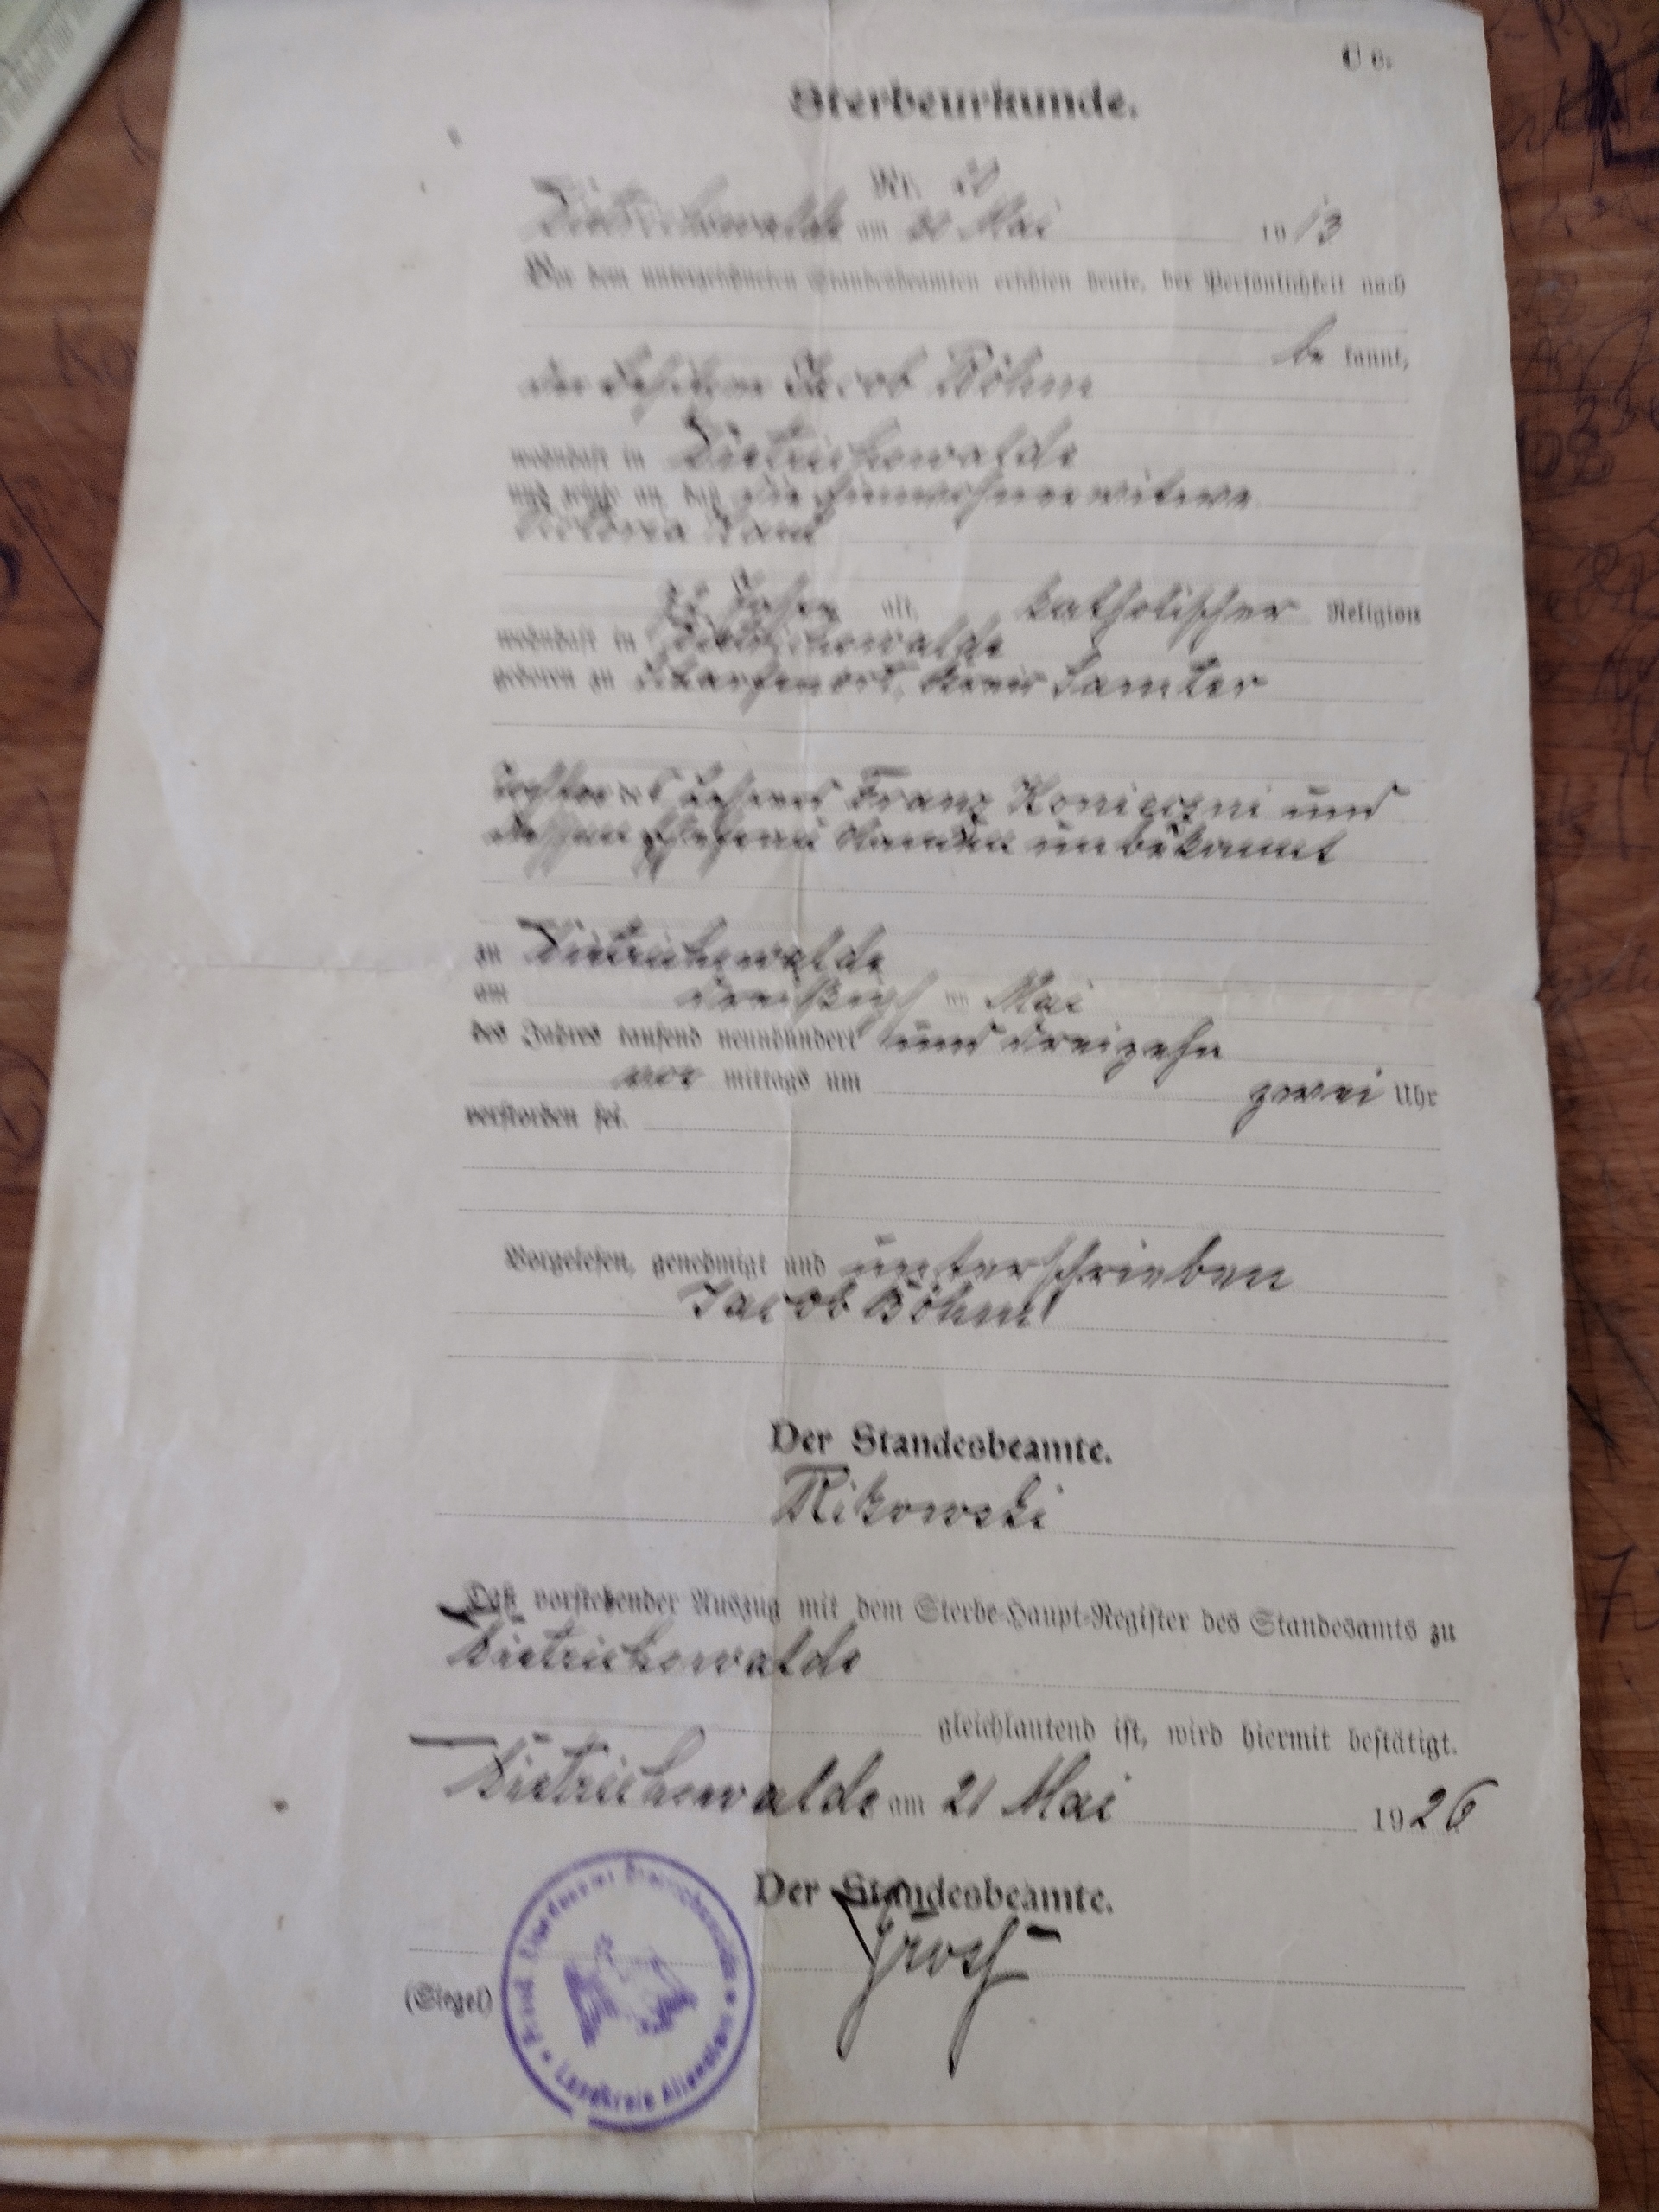 C e.
Sterbeurkunde.
Nr. 20
Dietrichswalde am 30 Mai 1913
Vor dem unterzeichneten Standesbeamten erschien heute, der Persönlichkeit nach
be kannt,
der Jacob Böhm
wohnhaft in Dietrichswalde
und zeigte an, daß die Einwohnerwitwe
wohnhaft in Dietrichswalde
Jahre alt, katholischer Religion
geboren zu Scharfenort, Kreis Samter
Tochter des Franz Konieczni und
dessen Ehefrau Namen unbekannt
zu Dietrichswalde
am dreißigsten Mai
des Jahres tausend neunhundert und dreizehn
vor mittags um zwei Uhr
verstorben sei.
Vorgelesen, genehmigt und unterschrieben
Jacob Böhm
Der Standesbeamte.
Rikowski
Daß vorstehender Auszug mit dem Sterbe-Haupt-Register des Standesamts zu
Dietrichswalde
gleichlautend ist, wird hiermit bestätigt.
Dietrichswalde am 21 Mai 1926
Der Standesbeamte.
(Siegel)
Landkreis Allenstein